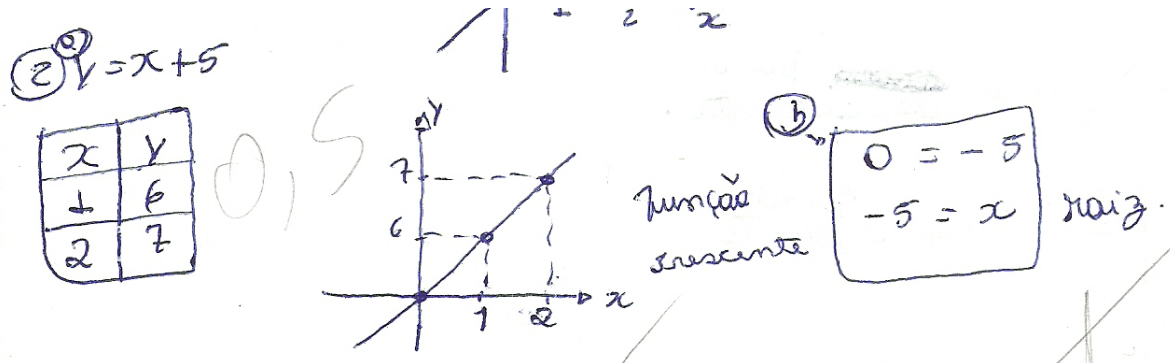 1 2 x
2 a y = x + 5
x y
1 6
2 7
0,5
y
7
6
1 2 x
função
crescente
b
0 = - 5
-5 = x
raiz.